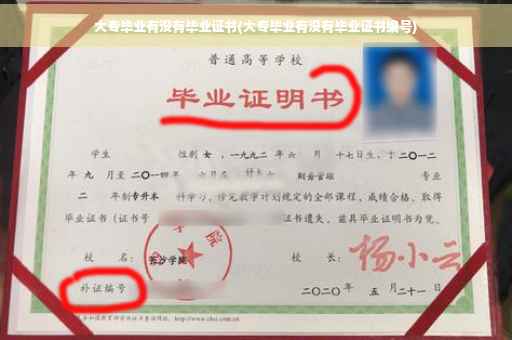 大专毕业有没有毕业证书(大专毕业有没有毕业证书编号)
普通高等学校
毕业证明书
学生 性别 女 ，一九九二 年 六 月 十七日生，于 二〇一二
年 九 月至 二〇一四 年 六月在 财务管理 专业
二 年制 专升本 科学习，修完教学计划规定的全部课程，成绩合格，取得
毕业证书（证书号 证书遗失，兹具毕业证明书为凭。
校 名： 长沙学院 校 长： 杨小云
补证编号 二〇二〇年 五 月 二十一日
http://www.chsi.com.cn